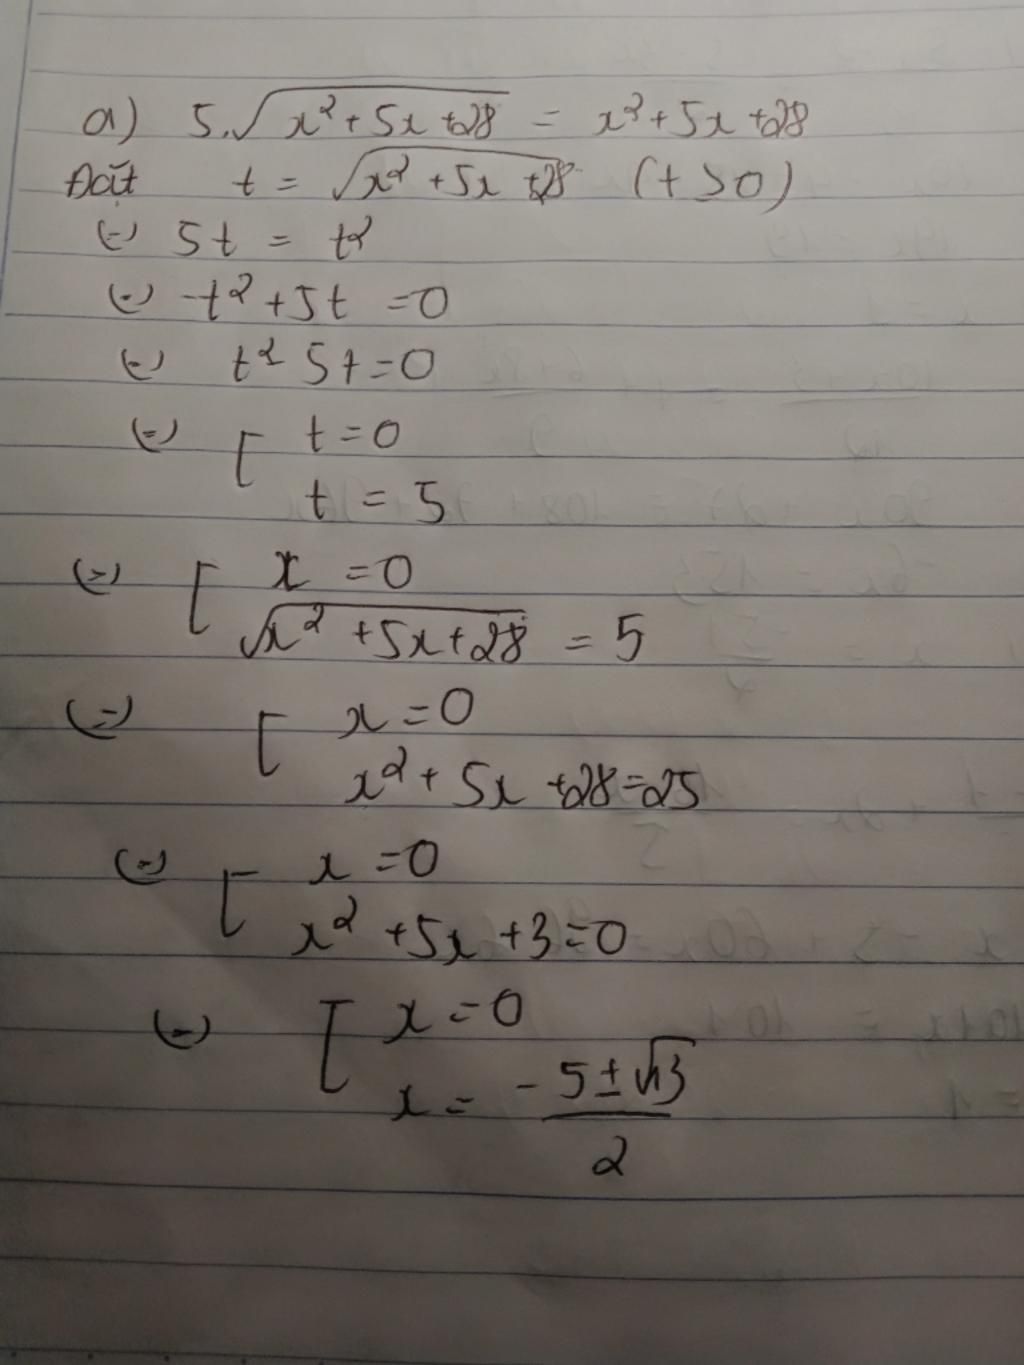 a) 5.√(x² + 5x + 28) = x² + 5x + 28
Đặt t = √(x² + 5x + 28) (t > 0)
(=) 5t = t²
(=) -t² + 5t = 0
(=) t² - 5t = 0
(=) [ t = 0
t = 5
(=) [ x = 0
√(x² + 5x + 28) = 5
(=) [ x = 0
x² + 5x + 28 = 25
(=) [ x = 0
x² + 5x + 3 = 0
(=) [ x = 0
x = (-5 ± √13)/2